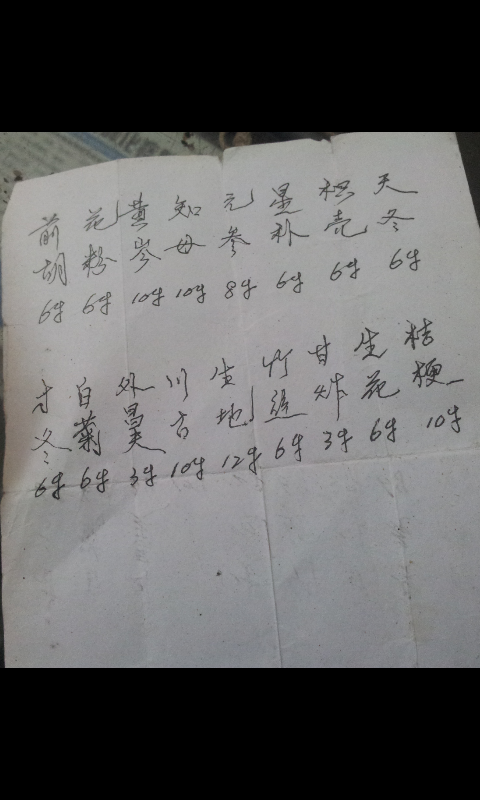 前胡 花粉 黄岑 知母 元参 枳壳 天冬
6g 6g 10g 10g 8g 6g 6g 6g
寸冬 白菊 川古 生地 竹 甘 生花 桔梗
6g 6g 3g 10g 12g 6g 3g 6g 10g